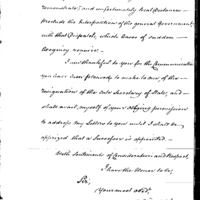 demonstrate, and unfortunately
preclude the interposition of the general Government
until that Dispatch, which Cases of sudden
exigency require.
I am thankful to you for the communication
you have been pleased to make to me, of the
resignation of the late Secretary of State, and
shall avail myself of your obliging permission
to address my Letters to you until I shall be
apprized that a Successor is appointed.
With Sentiments of Consideration and Respect,
I have the Honor to be,
Sir,
Your most obdt.